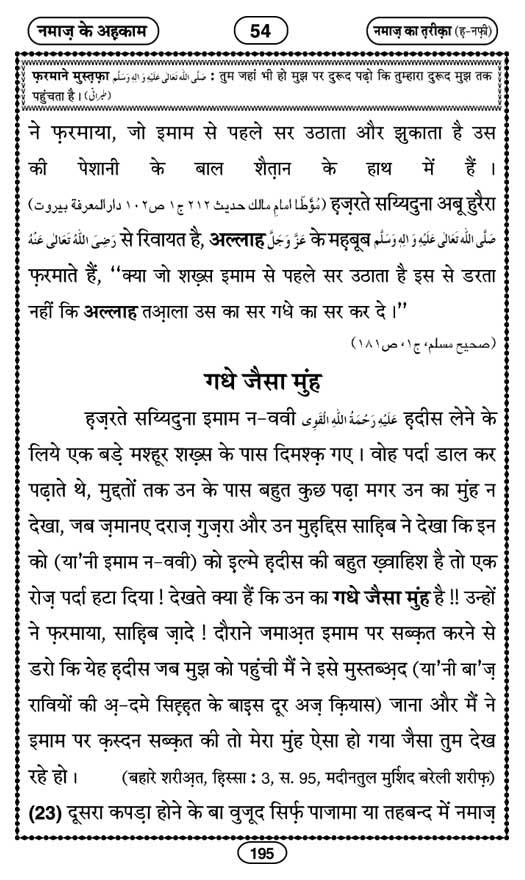 नमाज़ के अहकाम
54
नमाज़ का तरीक़ा (ह़-नफ़ी)
फ़रमाने मुस्तफ़ा صَلَّى اللّٰهُ تَعَالٰى عَلَيْهِ وَاٰلِهٖ وَسَلَّم : तुम जहां भी हो मुझ पर दुरूद पढ़ो कि तुम्हारा दुरूद मुझ तक
पहुंचता है। (طبرانی)
ने फ़रमाया, जो इमाम से पहले सर उठाता और झुकाता है उस
की पेशानी के बाल शैत़ान के हाथ में हैं ।
(مُؤَطَّا امام مالك حديث ٢١٢ ج١ ص١٠٢ دارالمعرفة بيروت) हज़रते सय्यिदुना अबू हुरैरा
رَضِیَ اللّٰهُ تَعَالٰی عَنْهُ से रिवायत है, अल्लाह عَزَّ وَجَلَّ के महबूब صَلَّى اللّٰهُ تَعَالٰى عَلَيْهِ وَاٰلِهٖ وَسَلَّم
फ़रमाते हैं, “क्या जो शख़्स इमाम से पहले सर उठाता है इस से डरता
नहीं कि अल्लाह तआ़ला उस का सर गधे का सर कर दे ।”
(صحيح مسلم، ج١، ص١٨١)
गधे जैसा मुंह
हज़रते सय्यिदुना इमाम न-ववी عَلَيْهِ رَحْمَةُ اللّٰهِ الْقَوِی ह़दीस लेने के
लिये एक बड़े मश्हूर शख़्स के पास दिमश्क़ गए । वोह पर्दा डाल कर
पढ़ाते थे, मुद्दतों तक उन के पास बहुत कुछ पढ़ा मगर उन का मुंह न
देखा, जब ज़मानए दराज़ गुज़रा और उन मुह़द्दिस साह़िब ने देखा कि इन
को (या'नी इमाम न-ववी) को इल्मे ह़दीस की बहुत ख़्वाहिश है तो एक
रोज़ पर्दा हटा दिया ! देखते क्या हैं कि उन का गधे जैसा मुंह है !! उन्हों
ने फ़रमाया, साह़िब ज़ादे ! दौराने जमाअ़त इमाम पर सब्क़त करने से
डरो कि येह ह़दीस जब मुझ को पहुंची मैं ने इसे मुस्तब्अ़द (या'नी बा'ज़
रावियों की अ़-दमे सिह़्ह़त के बाइस दूर अज़ क़ियास) जाना और मैं ने
इमाम पर क़स्दन सब्क़त की तो मेरा मुंह ऐसा हो गया जैसा तुम देख
रहे हो । (बहारे शरीअ़त, ह़िस्सा : 3, स. 95, मदीनतुल मुर्शिद बरेली शरीफ़)
(23) दूसरा कपड़ा होने के बा वुजूद सिर्फ़ पाजामा या तहबन्द में नमाज़
195